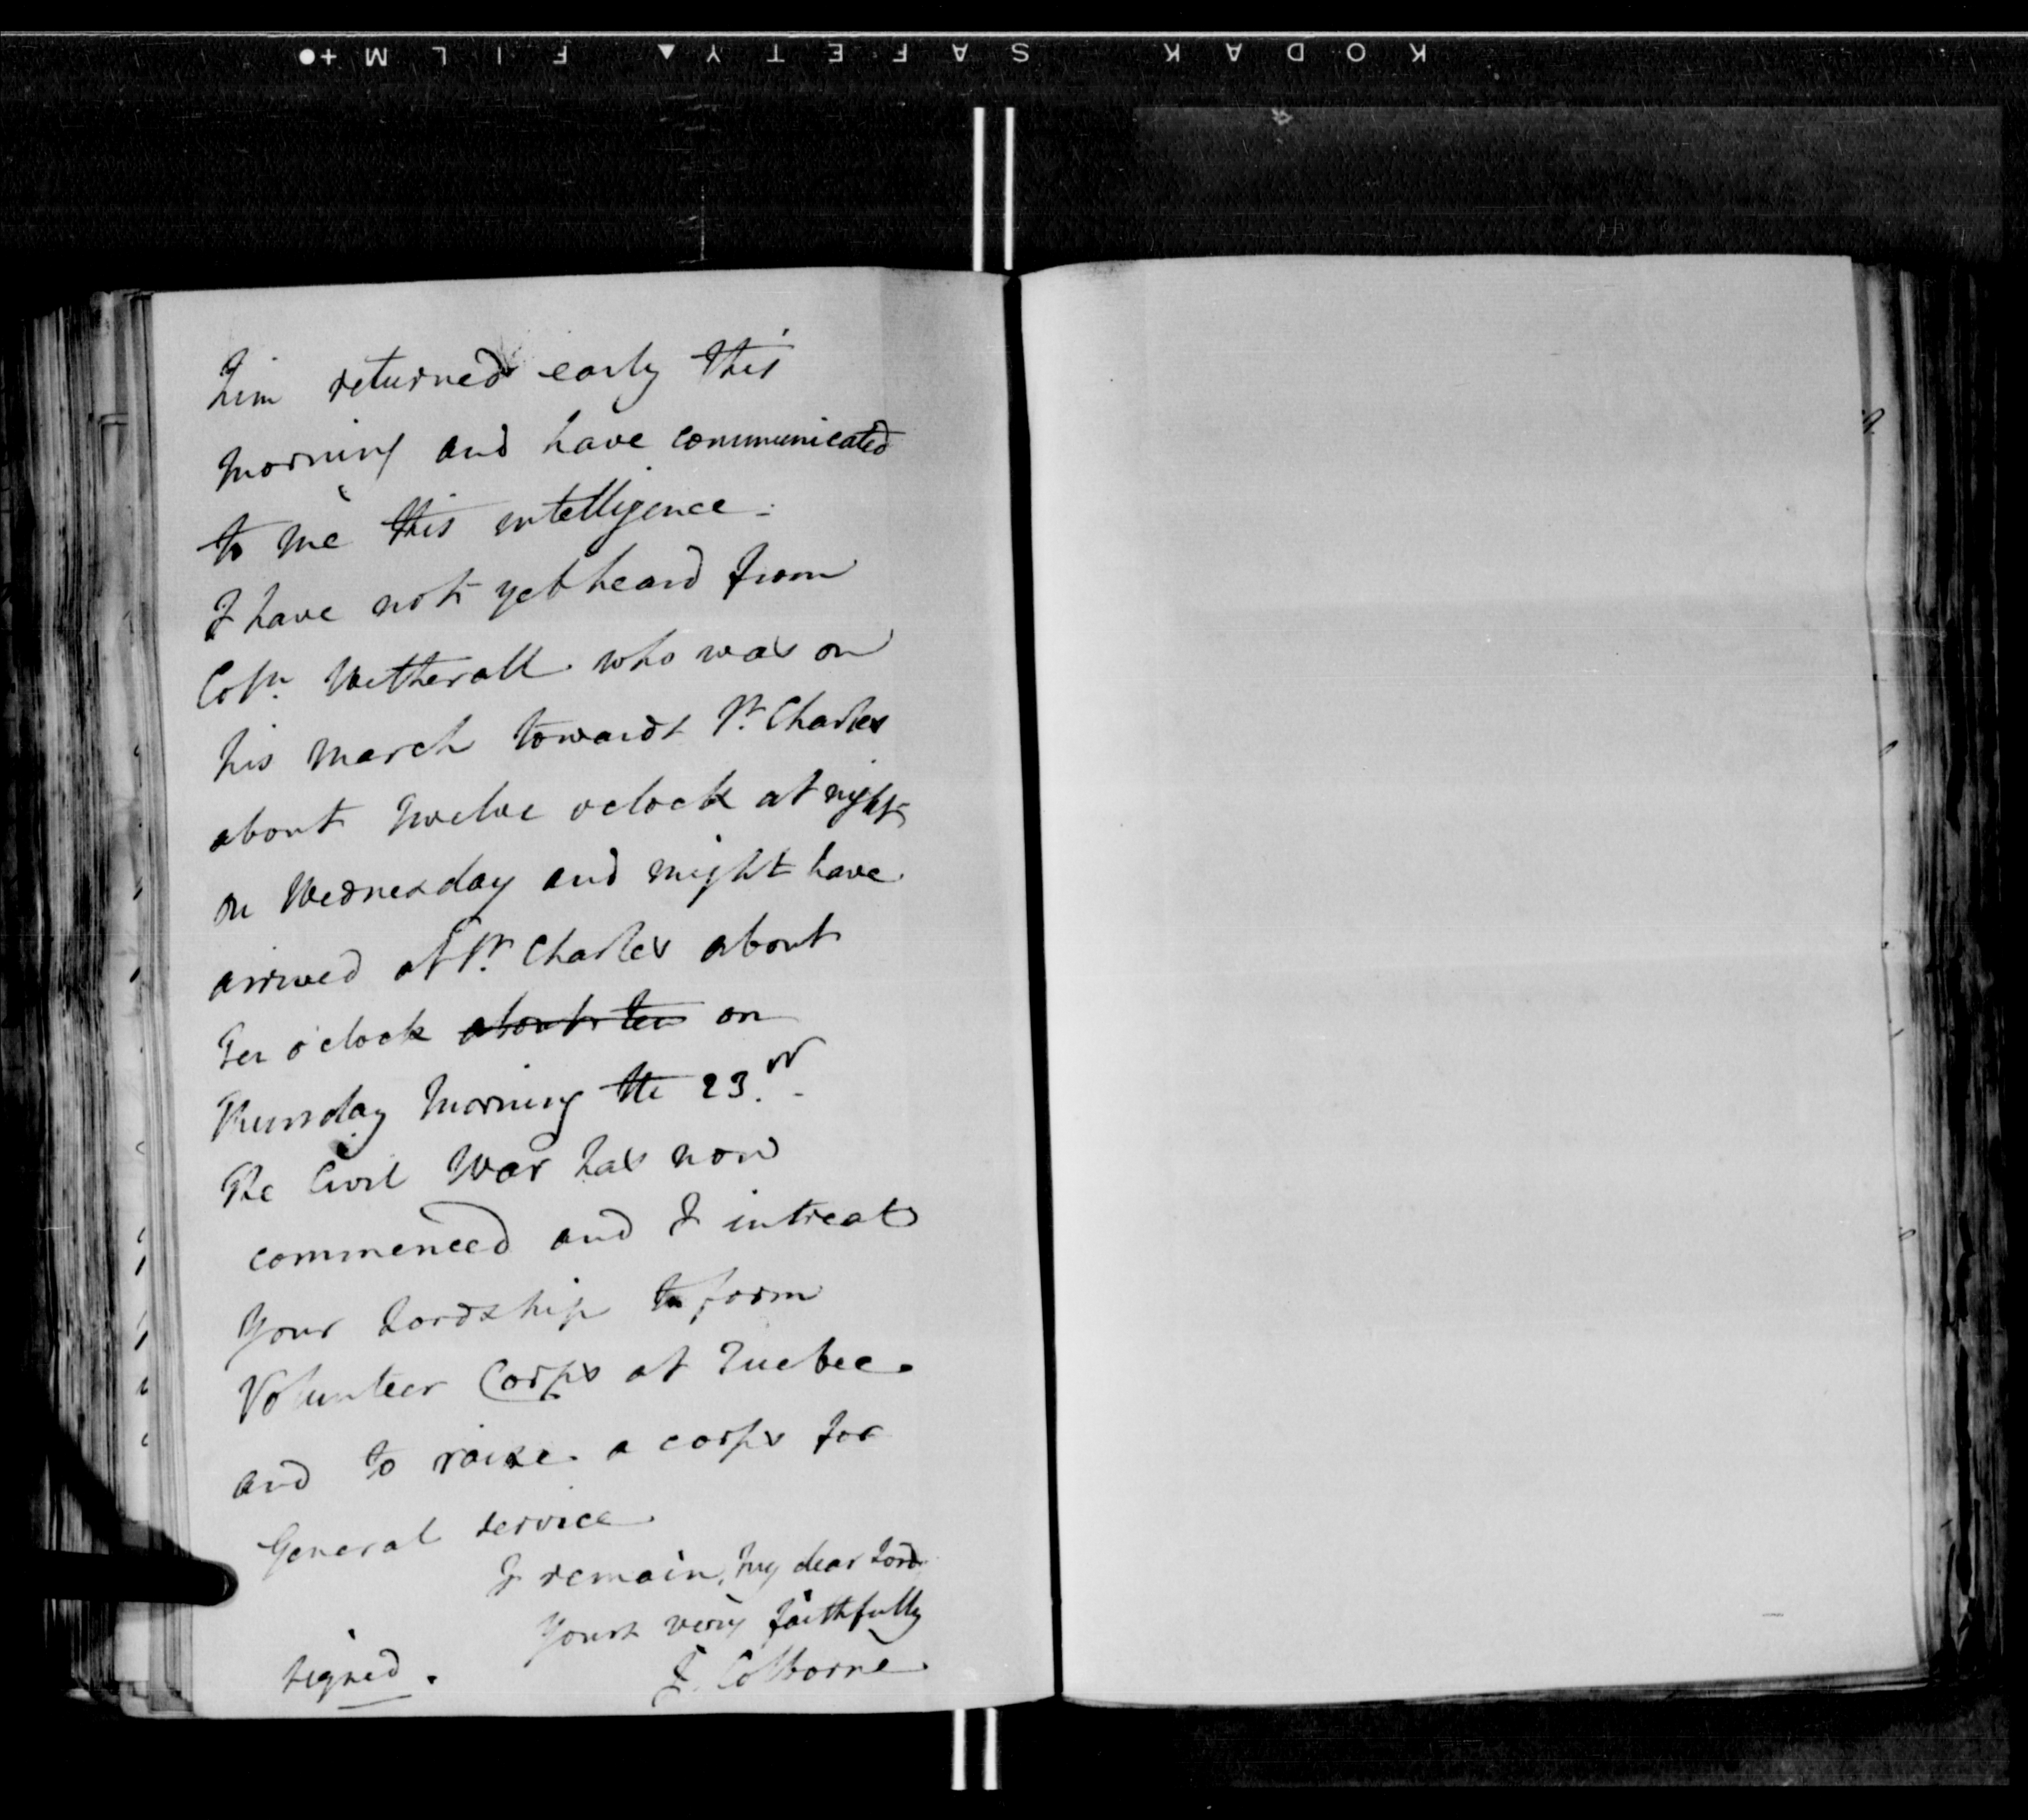 KODAK SAFETY FILM
him returned early this
morning and have communicated
to me this intelligence -
I have not yet heard from
Coln. Wetherall who was on
his march towards St. Charles
about twelve oclock at night
on Wednesday and might have
arrived at St. Charles about
Ten o'clock about ten on
Thursday morning the 23.rd -
The Civil War has now
commenced and I intreat
Your Lordship to form
Volunteer Corps at Quebec
and to raise a corps for
General service
I remain, my dear Lord
Yours very faithfully
signed. J. Colborne